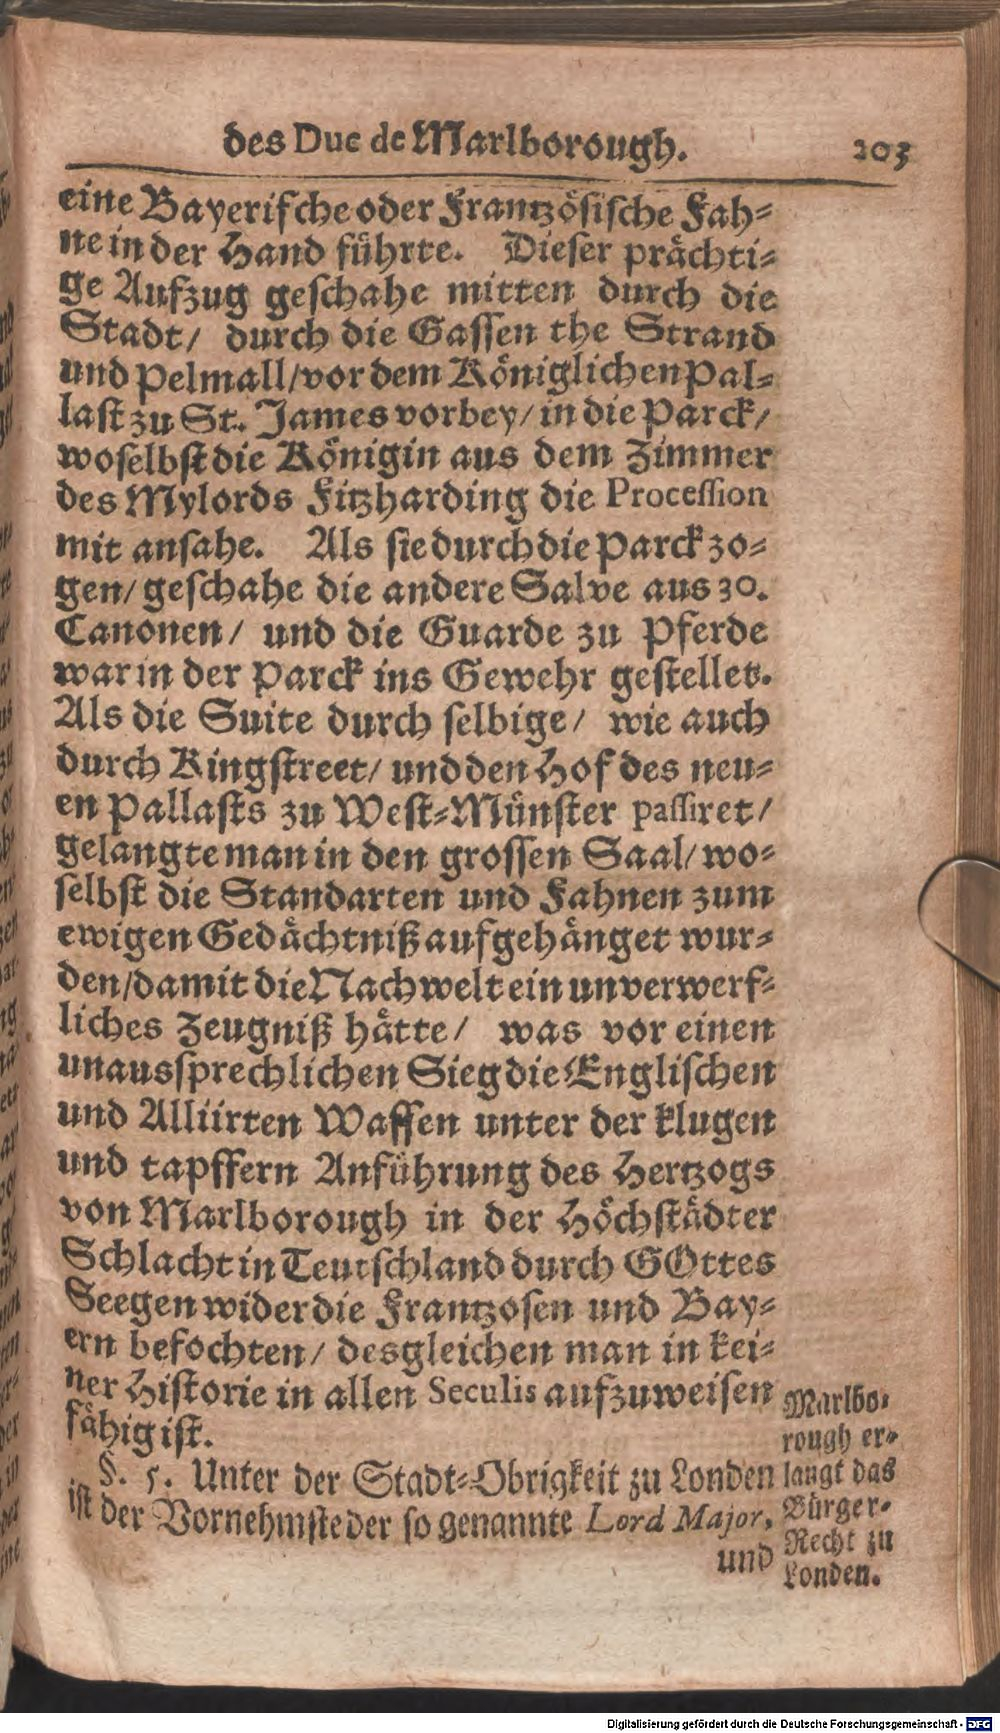 des Duc de Marlborough. 203
eine Bayerische oder Frantzösische Fah-
ne in der Hand führte. Dieser prächti-
ge Aufzug geschahe mitten durch die
Stadt/ durch die Gassen the Strand
und Pelmall/ vor dem Königlichen Pal-
last zu St. James vorbey/ in die Parck/
woselbst die Königin aus dem Zimmer
des Mylords Fitzharding die Procession
mit ansahe. Als sie durch die Parck zo-
gen/ geschahe die andere Salve aus 30.
Canonen/ und die Guarde zu Pferde
war in der Parck ins Gewehr gestellet.
Als die Suite durch selbige/ wie auch
durch Kingstreet/ und den Hof des neu-
en Pallasts zu West-Münster passiret/
gelangte man in den grossen Saal/ wo-
selbst die Standarten und Fahnen zum
ewigen Gedächtniß aufgehänget wur-
den/ damit die Nachwelt ein unverwerf-
liches Zeugniß hätte/ was vor einen
unaussprechlichen Sieg die Englischen
und Alliirten Waffen unter der klugen
und tapffern Anführung des Hertzogs
von Marlborough in der Höchstädter
Schlacht in Teutschland durch GOttes
Seegen wider die Frantzosen und Bay-
ern befochten/ desgleichen man in kei-
ner Historie in allen Seculis aufzuweisen
fähig ist.
§. 5. Unter der Stadt-Obrigkeit zu Londen
ist der Vornehmste der so genannte Lord Major,
und
Marlbo-
rough er-
langt das
Bürger-
Recht zu
Londen.
Digitalisierung gefördert durch die Deutsche Forschungsgemeinschaft - DFG